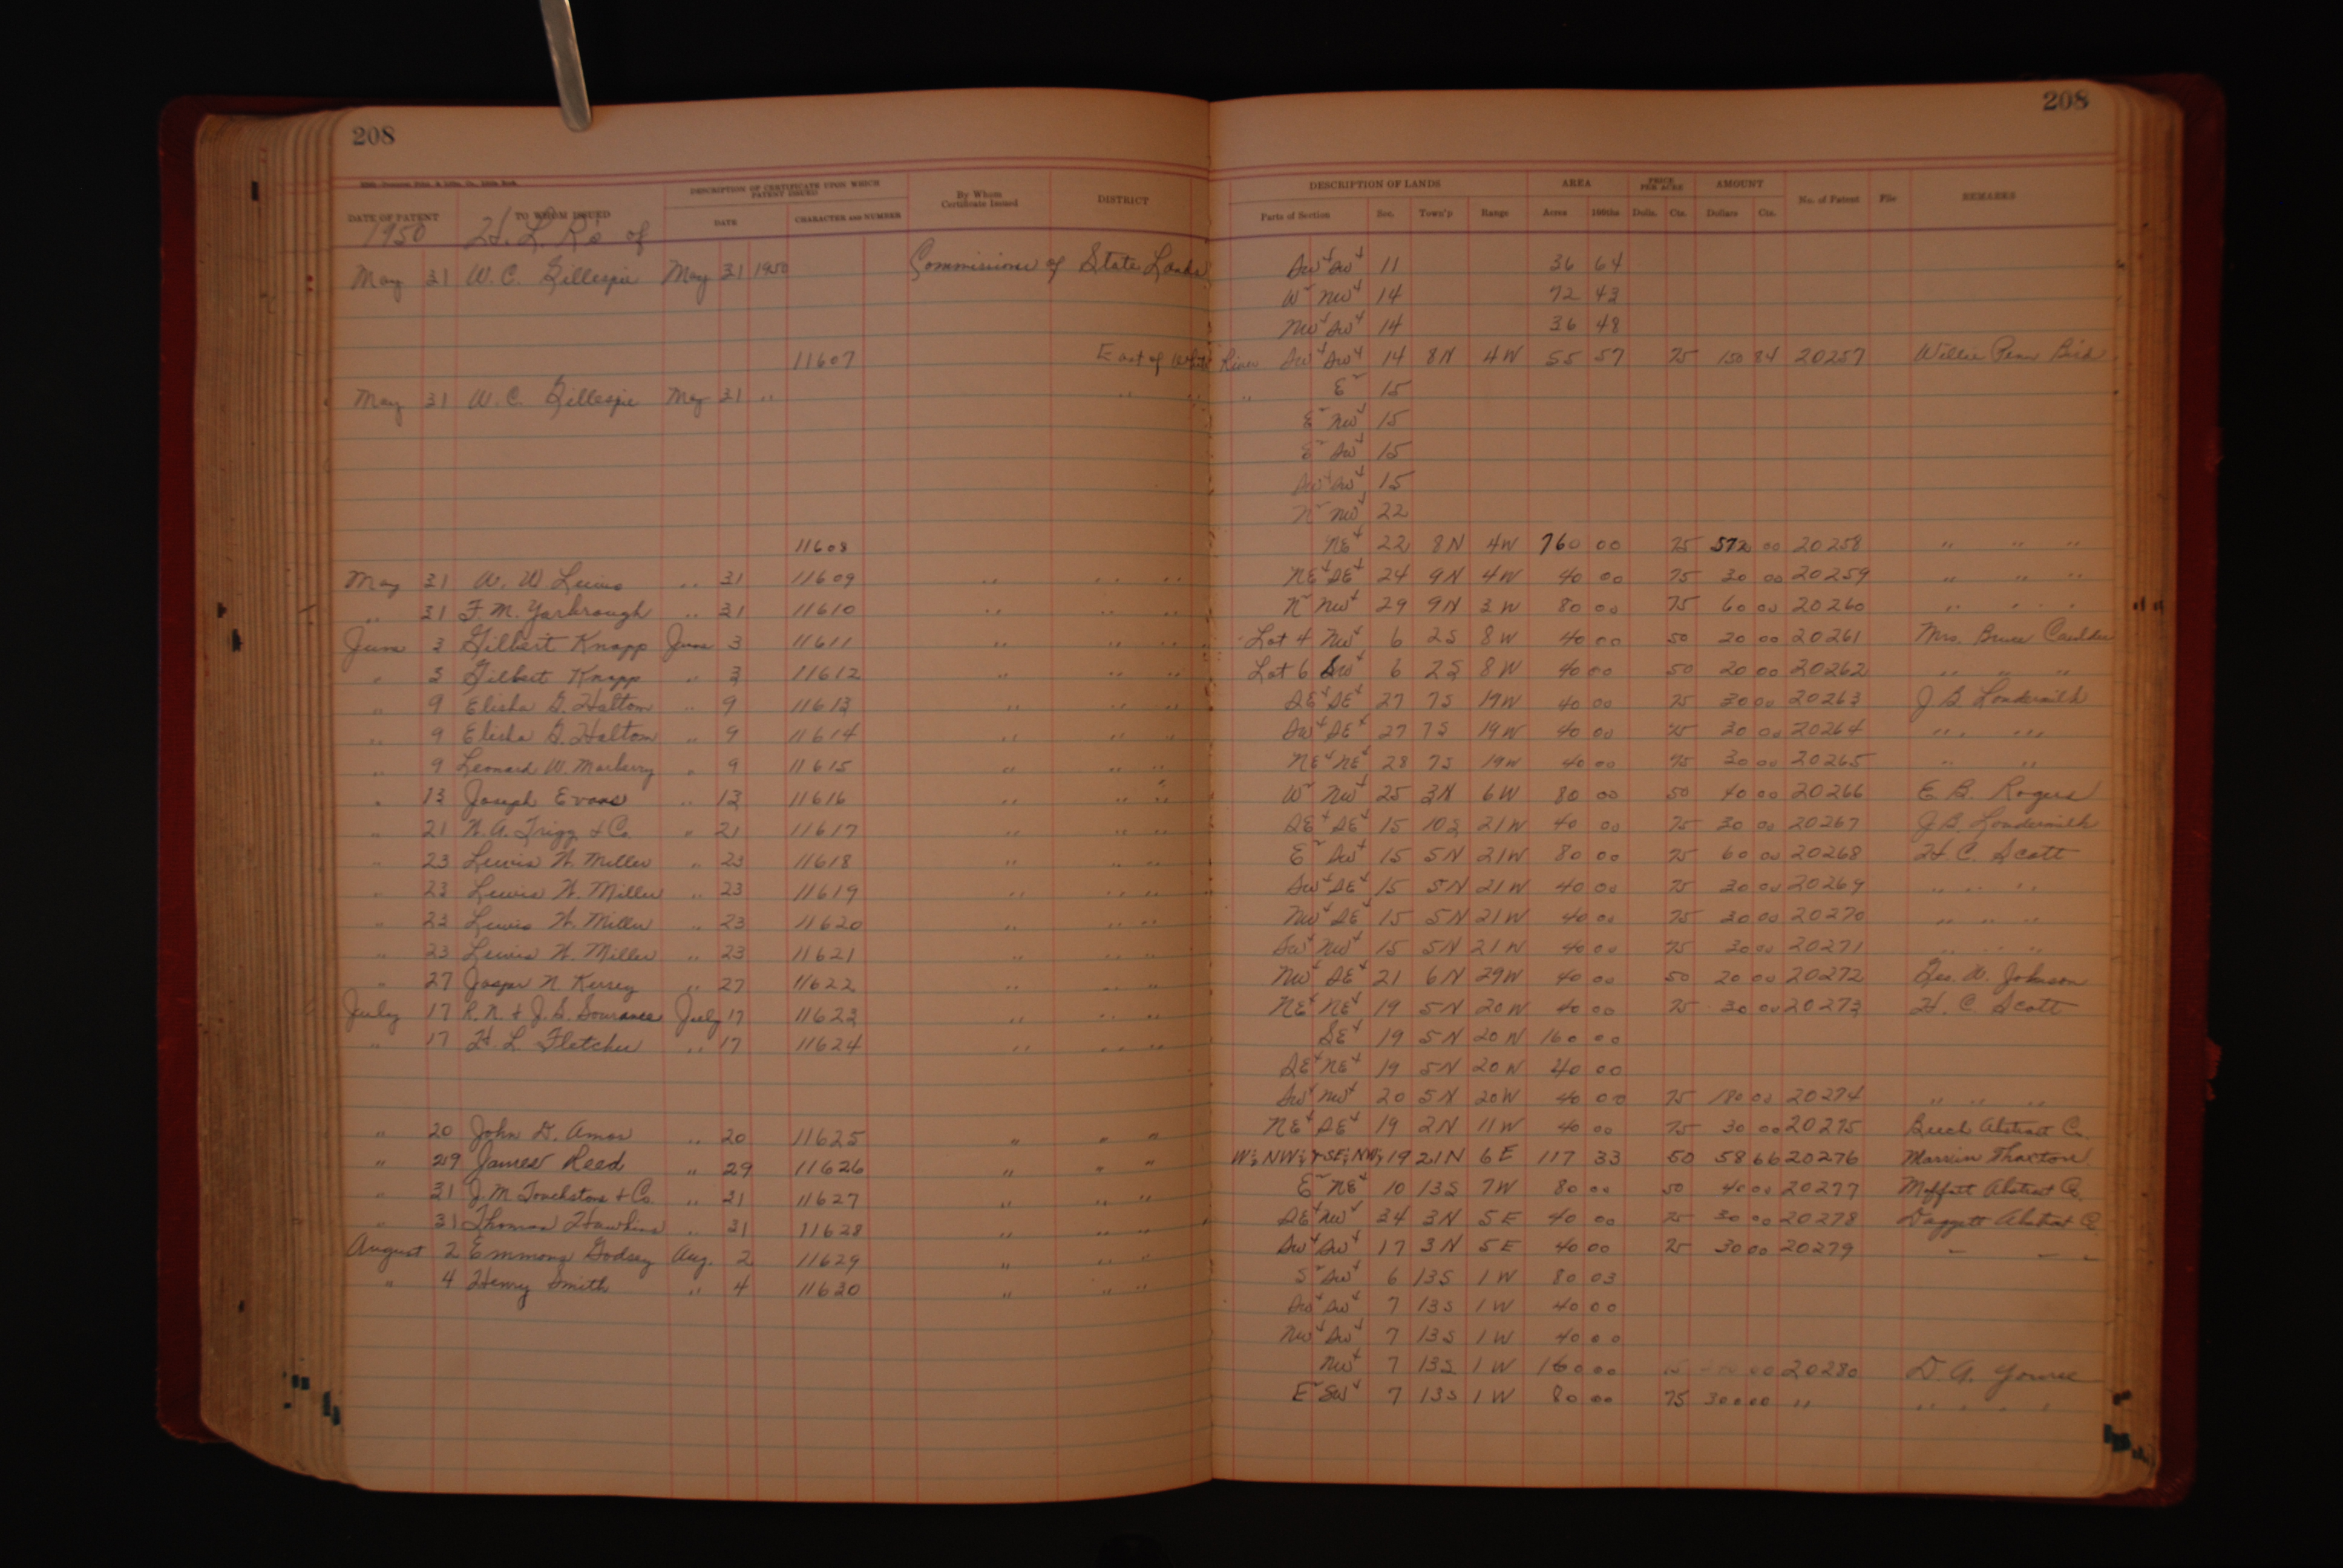 208 208
DATE OF PATENT TO WHOM ISSUED DESCRIPTION OF CERTIFICATE UPON WHICH PATENT ISSUED DATE CHARACTER AND NUMBER By Whom Certificate Issued DISTRICT DESCRIPTION OF LANDS Parts of Section Sec. Town'p Range AREA Acres 100ths PRICE PER ACRE Dolls. Cts. AMOUNT Dollars Cts. No. of Patent File REMARKS
1950 H. L. R's of
May 31 W. C. Gillespie May 31 1950 Commissioner of State Lands SW¼ SW¼ 11 36 64
W½ NW¼ 14 72 43
NW¼ SW¼ 14 36 48
11607 East of White River SW¼ SW¼ 14 8N 4W 55 57 75 150 84 20257 Willie Penn Bird
May 31 W. C. Gillespie May 31 " " " " E½ 15
E½ NW¼ 15
E½ SW¼ 15
SW¼ SW¼ 15
N½ NW¼ 22
11608 NE¼ 22 8N 4W 760 00 75 572 00 20258 " " "
May 31 W. W. Lewis " 31 11609 " " " NE¼ SE¼ 24 9N 4W 40 00 75 30 00 20259 " " "
" 31 F. M. Yarbrough " 31 11610 " " " N½ NW¼ 29 9N 3W 80 00 75 60 00 20260 " " "
June 3 Gilbert Knapp June 3 11611 " " " Lot 4 NW¼ 6 2S 8W 40 00 50 20 00 20261 Mrs. Bruce Caulder
" 3 Gilbert Knapp " 3 11612 " " " Lot 6 SW¼ 6 2S 8W 40 00 50 20 00 20262 " " "
" 9 Elisha G. Haltom " 9 11613 " " " SE¼ SE¼ 27 7S 19W 40 00 75 30 00 20263 J. B. Loudermilk
" 9 Elisha G. Haltom " 9 11614 " " " SW¼ SE¼ 27 7S 19W 40 00 75 30 00 20264 " " "
" 9 Leonard W. Marberry " 9 11615 " " " NE¼ NE¼ 28 7S 19W 40 00 75 30 00 20265 " "
" 13 Joseph Evans " 13 11616 " " " W½ NW¼ 25 3N 6W 80 00 50 40 00 20266 E. B. Rogers
" 21 W. A. Trigg & Co. " 21 11617 " " " SE¼ SE¼ 15 10S 21W 40 00 75 30 00 20267 J. B. Loudermilk
" 23 Lewis W. Miller " 23 11618 " " " E½ SW¼ 15 5N 21W 80 00 75 60 00 20268 H. C. Scott
" 23 Lewis W. Miller " 23 11619 " " " SW¼ SE¼ 15 5N 21W 40 00 75 30 00 20269 " " "
" 23 Lewis W. Miller " 23 11620 " " " NW¼ SE¼ 15 5N 21W 40 00 75 30 00 20270 " " "
" 23 Lewis W. Miller " 23 11621 " " " SW¼ NW¼ 15 5N 21W 40 00 75 30 00 20271 " " "
" 27 Jasper N Kersey " 27 11622 " " " NW¼ SE¼ 21 6N 29W 40 00 50 20 00 20272 Geo. W. Johnson
July 17 R. N. & J. S. July 17 11623 " " " NE¼ NE¼ 19 5N 20W 40 00 75 30 00 20273 H. C. Scott
" 17 H. L. Fletcher " 17 11624 " " " SE¼ 19 5N 20W 160 00
SE¼ NE¼ 19 5N 20W 40 00
SW¼ NW¼ 20 5N 20W 40 00 75 180 00 20274 " " "
" 20 John D. Amos " 20 11625 " " " NE¼ SE¼ 19 2N 11W 40 00 75 30 00 20275 Beech Abstract Co.
" 29 James Reed " 29 11626 " " " W½ NW¼ & SE¼ NW¼ 19 21N 6E 117 33 50 58 66 20276 Marvin Thaxton
" 31 J. M Touchstone & Co. " 31 11627 " " " E½ NE¼ 10 13S 7W 80 00 50 40 00 20277 Moffatt Abstract Co.
" 31 Thomas Hawkins " 31 11628 " " " SE¼ NW¼ 34 3N 5E 40 00 75 30 00 20278 Daggett Abstract Co.
August 2 Emmons Godsey Aug. 2 11629 " " " SW¼ SW¼ 17 3N 5E 40 00 75 30 00 20279 " " "
" 4 Henry Smith " 4 11630 " " " S½ SW¼ 6 13S 1W 80 03
SW¼ SW¼ 7 13S 1W 40 00
NW¼ SW¼ 7 13S 1W 40 00
NW¼ 7 13S 1W 160 00 20280 D. A.
E½ SW¼ 7 13S 1W 80 00 75 300 00 " " " " "